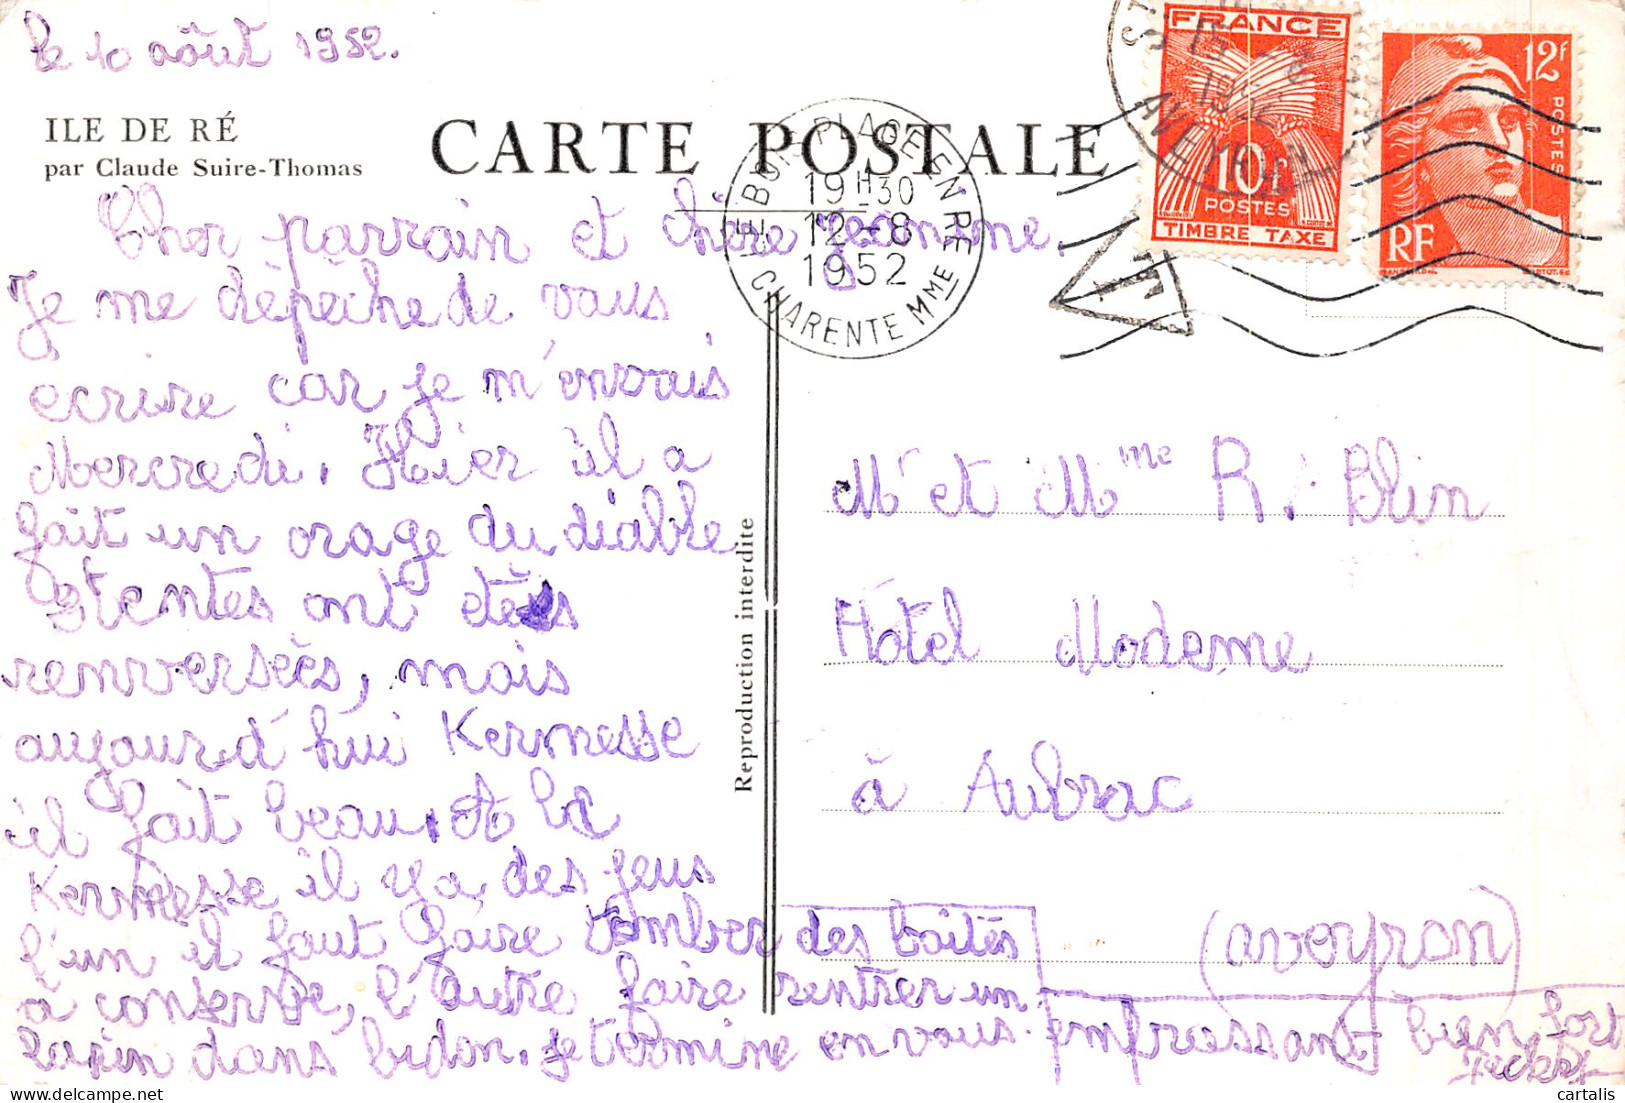 le 10 aôut 1952.
ILE DE RÉ
par Claude Suire-Thomas
CARTE POSTALE
LE BOIS-PLAGE EN RÉ
19H30
12-8
1952
CHARENTE MME
FRANCE
10F
POSTES
TIMBRE TAXE
AVEYRON
1952
T
12F
POSTES
RF
Cher parrain et chère
Je me dépèche de vous
ecrire car je m'envais
Mercredi. Hier il a
fait un orage du diable
3 tentes ont étés
renversées, mais
aujourd'hui Kermesse
il fait beau. A la
Kermesse il y a des jeus
l'un il faut faire tomber des boîtes
à conserve, l'autre faire rentrer un
dans bidon. je termine en vous embrassant bien fort
Reproduction interdite
Mr et Mme R. Blin
Hôtel Moderne
à Aubrac
(aveyron)
cartalis